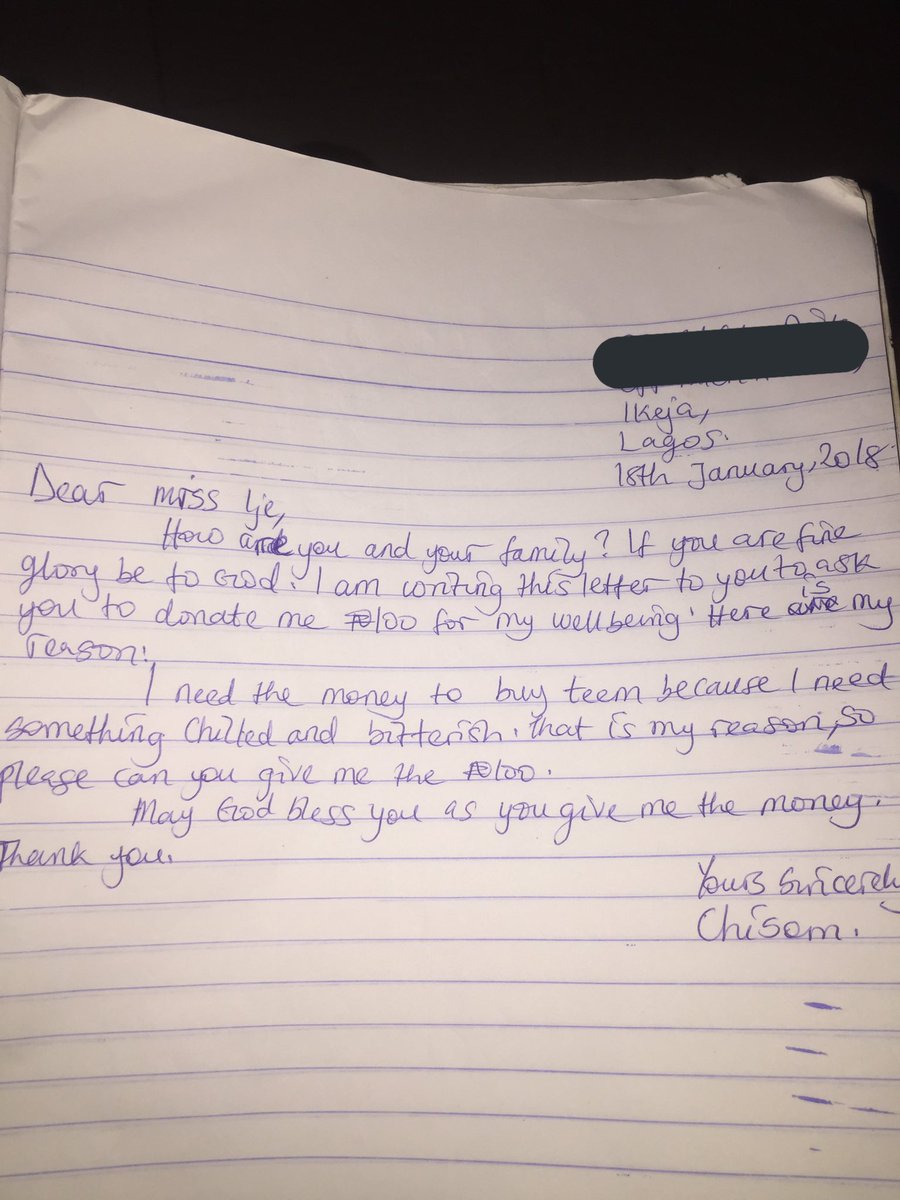 Ikeja,
Lagos.
18th January, 2018
Dear miss Ije,
How are you and your family? If you are fine
glory be to God. I am writing this letter to you to ask
you to donate me ₦100 for my wellbeing. Here is my
reason:
I need the money to buy teem because I need
something Chilled and bitterish. that is my reason, so
please can you give me the ₦100.
May God bless you as you give me the money.
Thank you.
Yours Sincerely
Chisom.